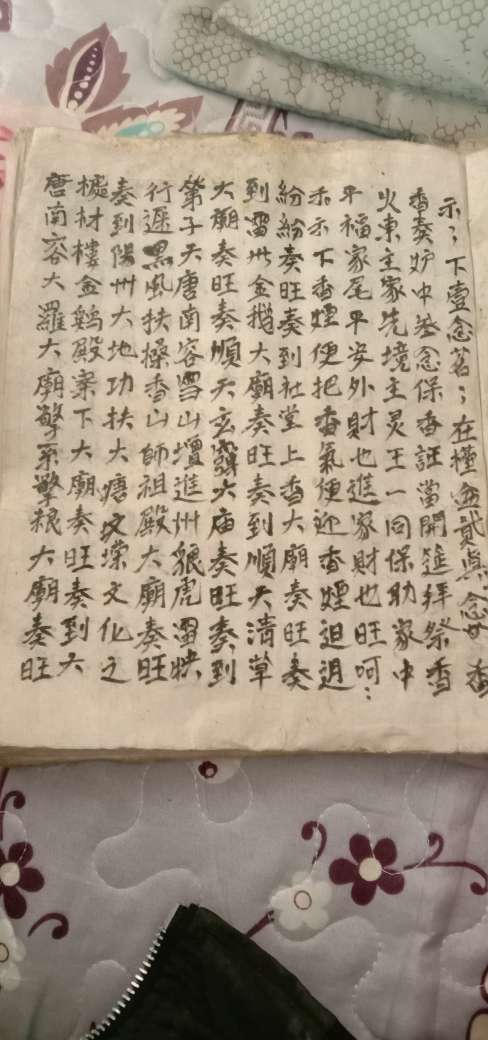 示；下壹念茗；在壇金貳與念廿香
香奏炉中叁念保香証當開筵拜祭香
火東主家先境主灵王一同保助家中
平福家尾平安外財也進家財也旺呵：
禾示下香煙便把香氣便迎香煙迫迌
紛紛奏旺奏到社堂上香大廟奏旺奏
到雷州金鵝大廟奏旺奏到順天清草
大廟奏旺奏順天玄大庙奏旺奏到
第子天唐南容雪山壇進州貌虎雷快
行遲黑風扶操香山師祖殿大廟奏旺
奏到陽州大地功扶大瘩文堞文化之
樾材樓金鷄殿案下大廟奏旺奏到六
唐南容大羅大廟擎系擎根大廟奏旺